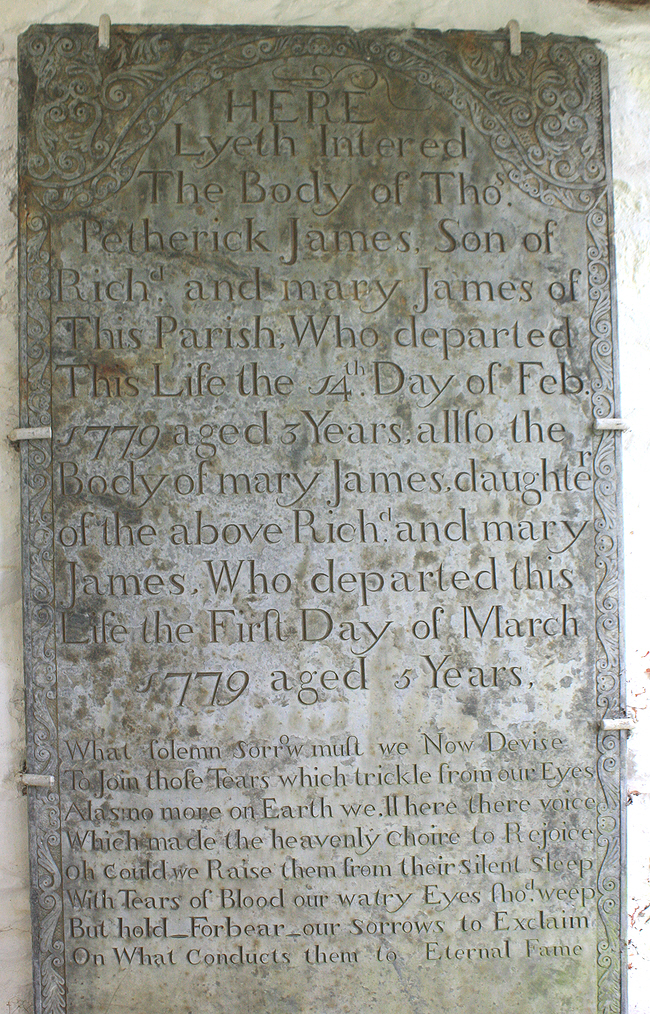 HERE
Lyeth Intered
The Body of Thos.
Petherick James, Son of
Richd. and mary James of
This Parish, Who departed
This Life the 14th. Day of Feb.
1779 aged 3 Years, allſo the
Body of mary James, daughter
of the above Richd. and mary
James, Who departed this
Life the Firſt Day of March
1779 aged 5 Years,
What ſolemn Sorrow muſt we Now Devise
To Join thoſe Tears which trickle from our Eyes
Alas: no more on Earth we,ll here there voice
Which made the heavenly Choire to Rejoice
Oh Could we Raise them from their Silent Sleep
With Tears of Blood our watry Eyes ſhod. weep
But hold_Forbear_our Sorrows to Exclaim
On What Conducts them to Eternal Fame